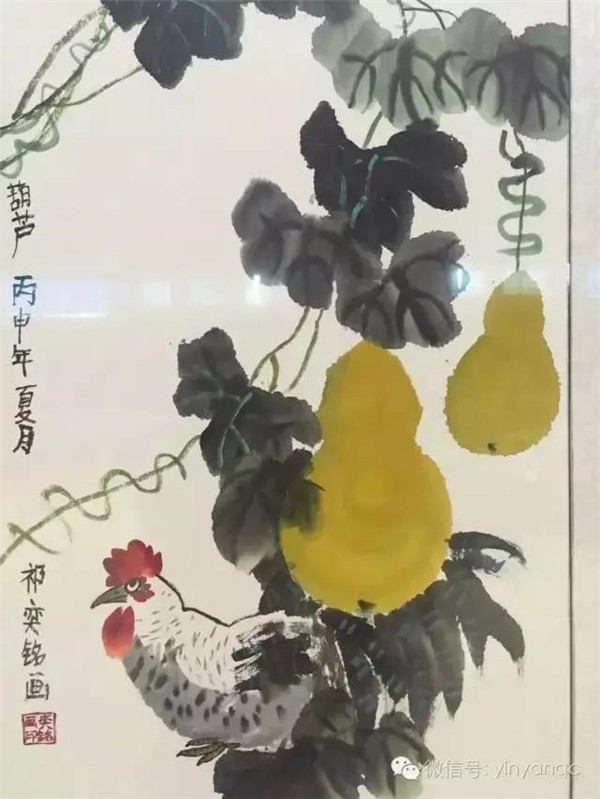 葫芦 丙申年夏月
祁奕铭画
微信号: yinyanqc